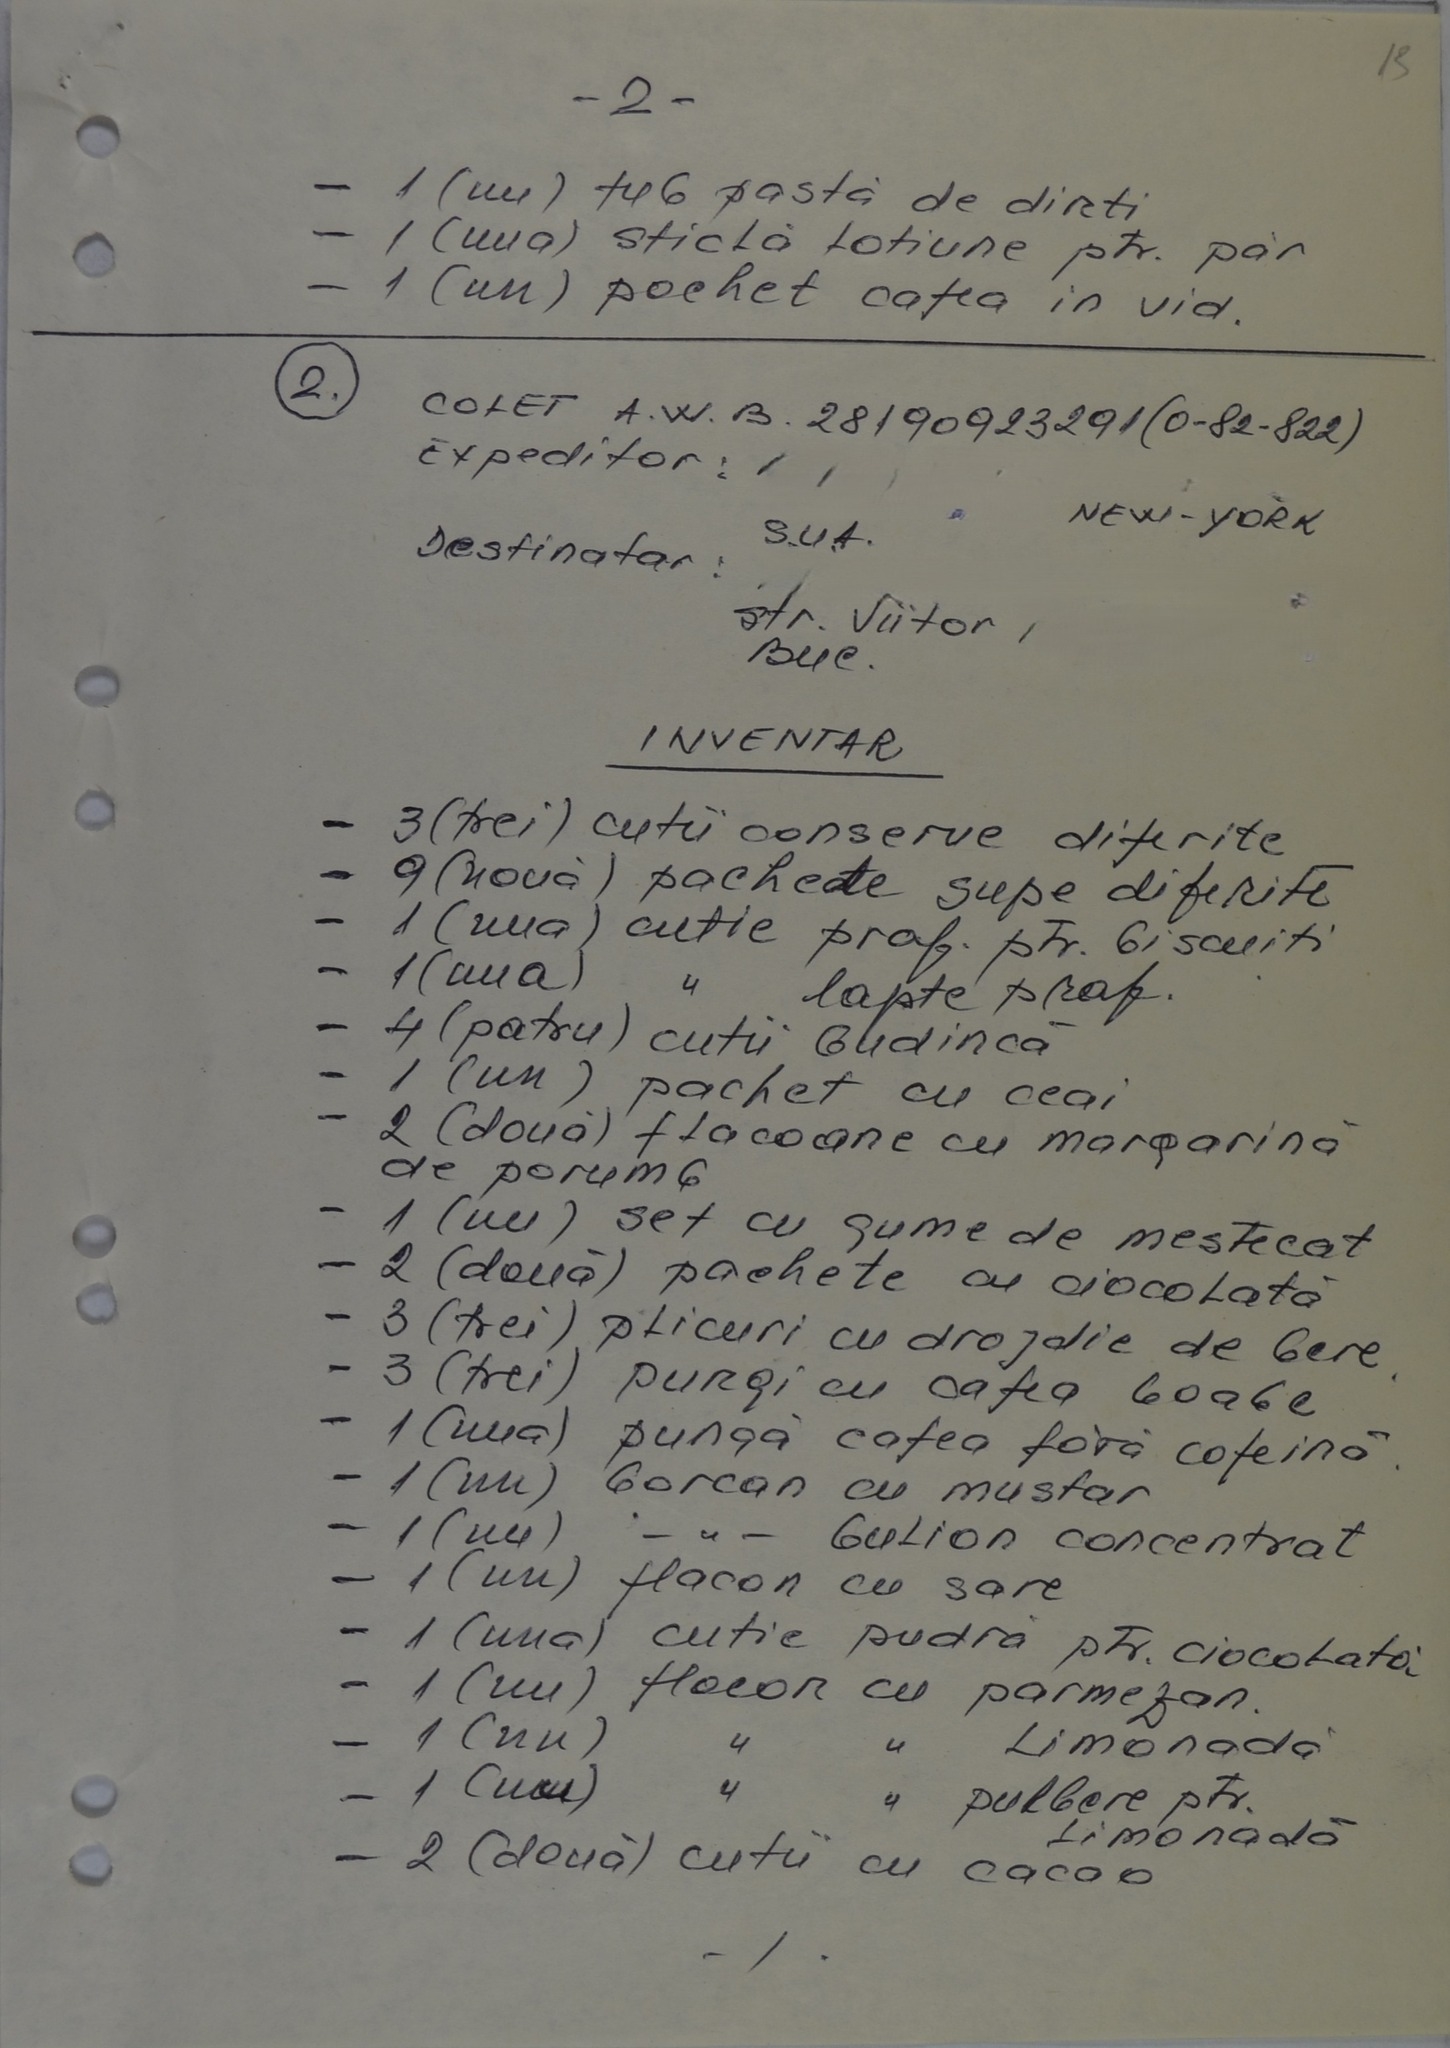 13
- 2 -
- 1 (un) tub pastă de dinti
- 1 (una) sticlă lotiune ptr. păr
- 1 (un) pachet cafea in vid.
2. COLET A.W.B. 28190923291 (0-82-822)
Expeditor: , ,
NEW-YORK
S.U.A.
Destinatar:
str. Viitor,
Buc.
INVENTAR
- 3 (trei) cutii conserve diferite
- 9 (nouă) pachete supe diferite
- 1 (una) cutie praf. ptr. biscuiti
- 1 (una) " lapte praf.
- 4 (patru) cutii budincă
- 1 (un) pachet cu ceai
- 2 (două) flacoane cu margarină
de porumb
- 1 (un) set cu gume de mestecat
- 2 (două) pachete cu ciocolată
- 3 (trei) plicuri cu drojdie de bere.
- 3 (trei) pungi cu cafea boabe
- 1 (una) pungă cafea fără cofeină.
- 1 (un) borcan cu mustar
- 1 (un) - " - bulion concentrat
- 1 (un) flacon cu sare
- 1 (una) cutie pudră ptr. ciocolată
- 1 (un) flacon cu parmezan.
- 1 (un) " " limonadă
- 1 (un) " " pulbere ptr.
limonadă
- 2 (două) cutii cu cacao
- / .